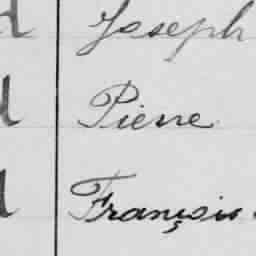 Joseph
Pierre
François